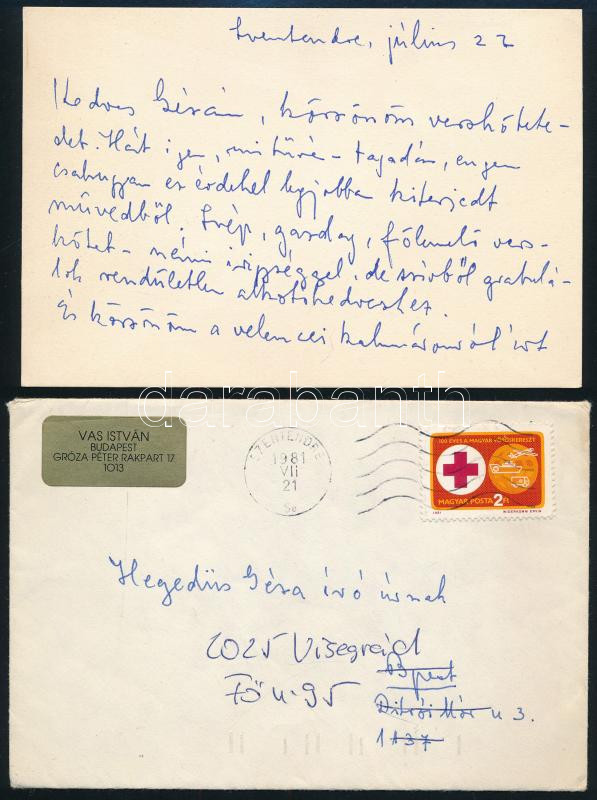 Szentendre, július 22
Kedves Gézám, köszönöm verskötete-
det. Hát igen, tagadám, engem
csakugyan ez érdekel legjobban kiterjedt
művedből. Szép, gazdag, fölemelő vers-
kötet – némi irigységgel, de szívből gratulá-
lok rendületlen alkotókedvedhez.
És köszönöm a velencei kalmáromról írt
darabanth
VAS ISTVÁN
BUDAPEST
GRÓZA PÉTER RAKPART 17
1013
SZENTENDRE
1981
VII
21
100 ÉVES A MAGYAR VÖRÖSKERESZT
MAGYAR POSTA 2Ft
1981
Hegedüs Géza író úrnak
2025 Visegrád
Fő u. 95
Bpest
Ditrói Mór u 3.
1137